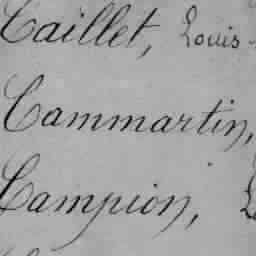 Caillet, Louis-
Cammartin,
Campion,